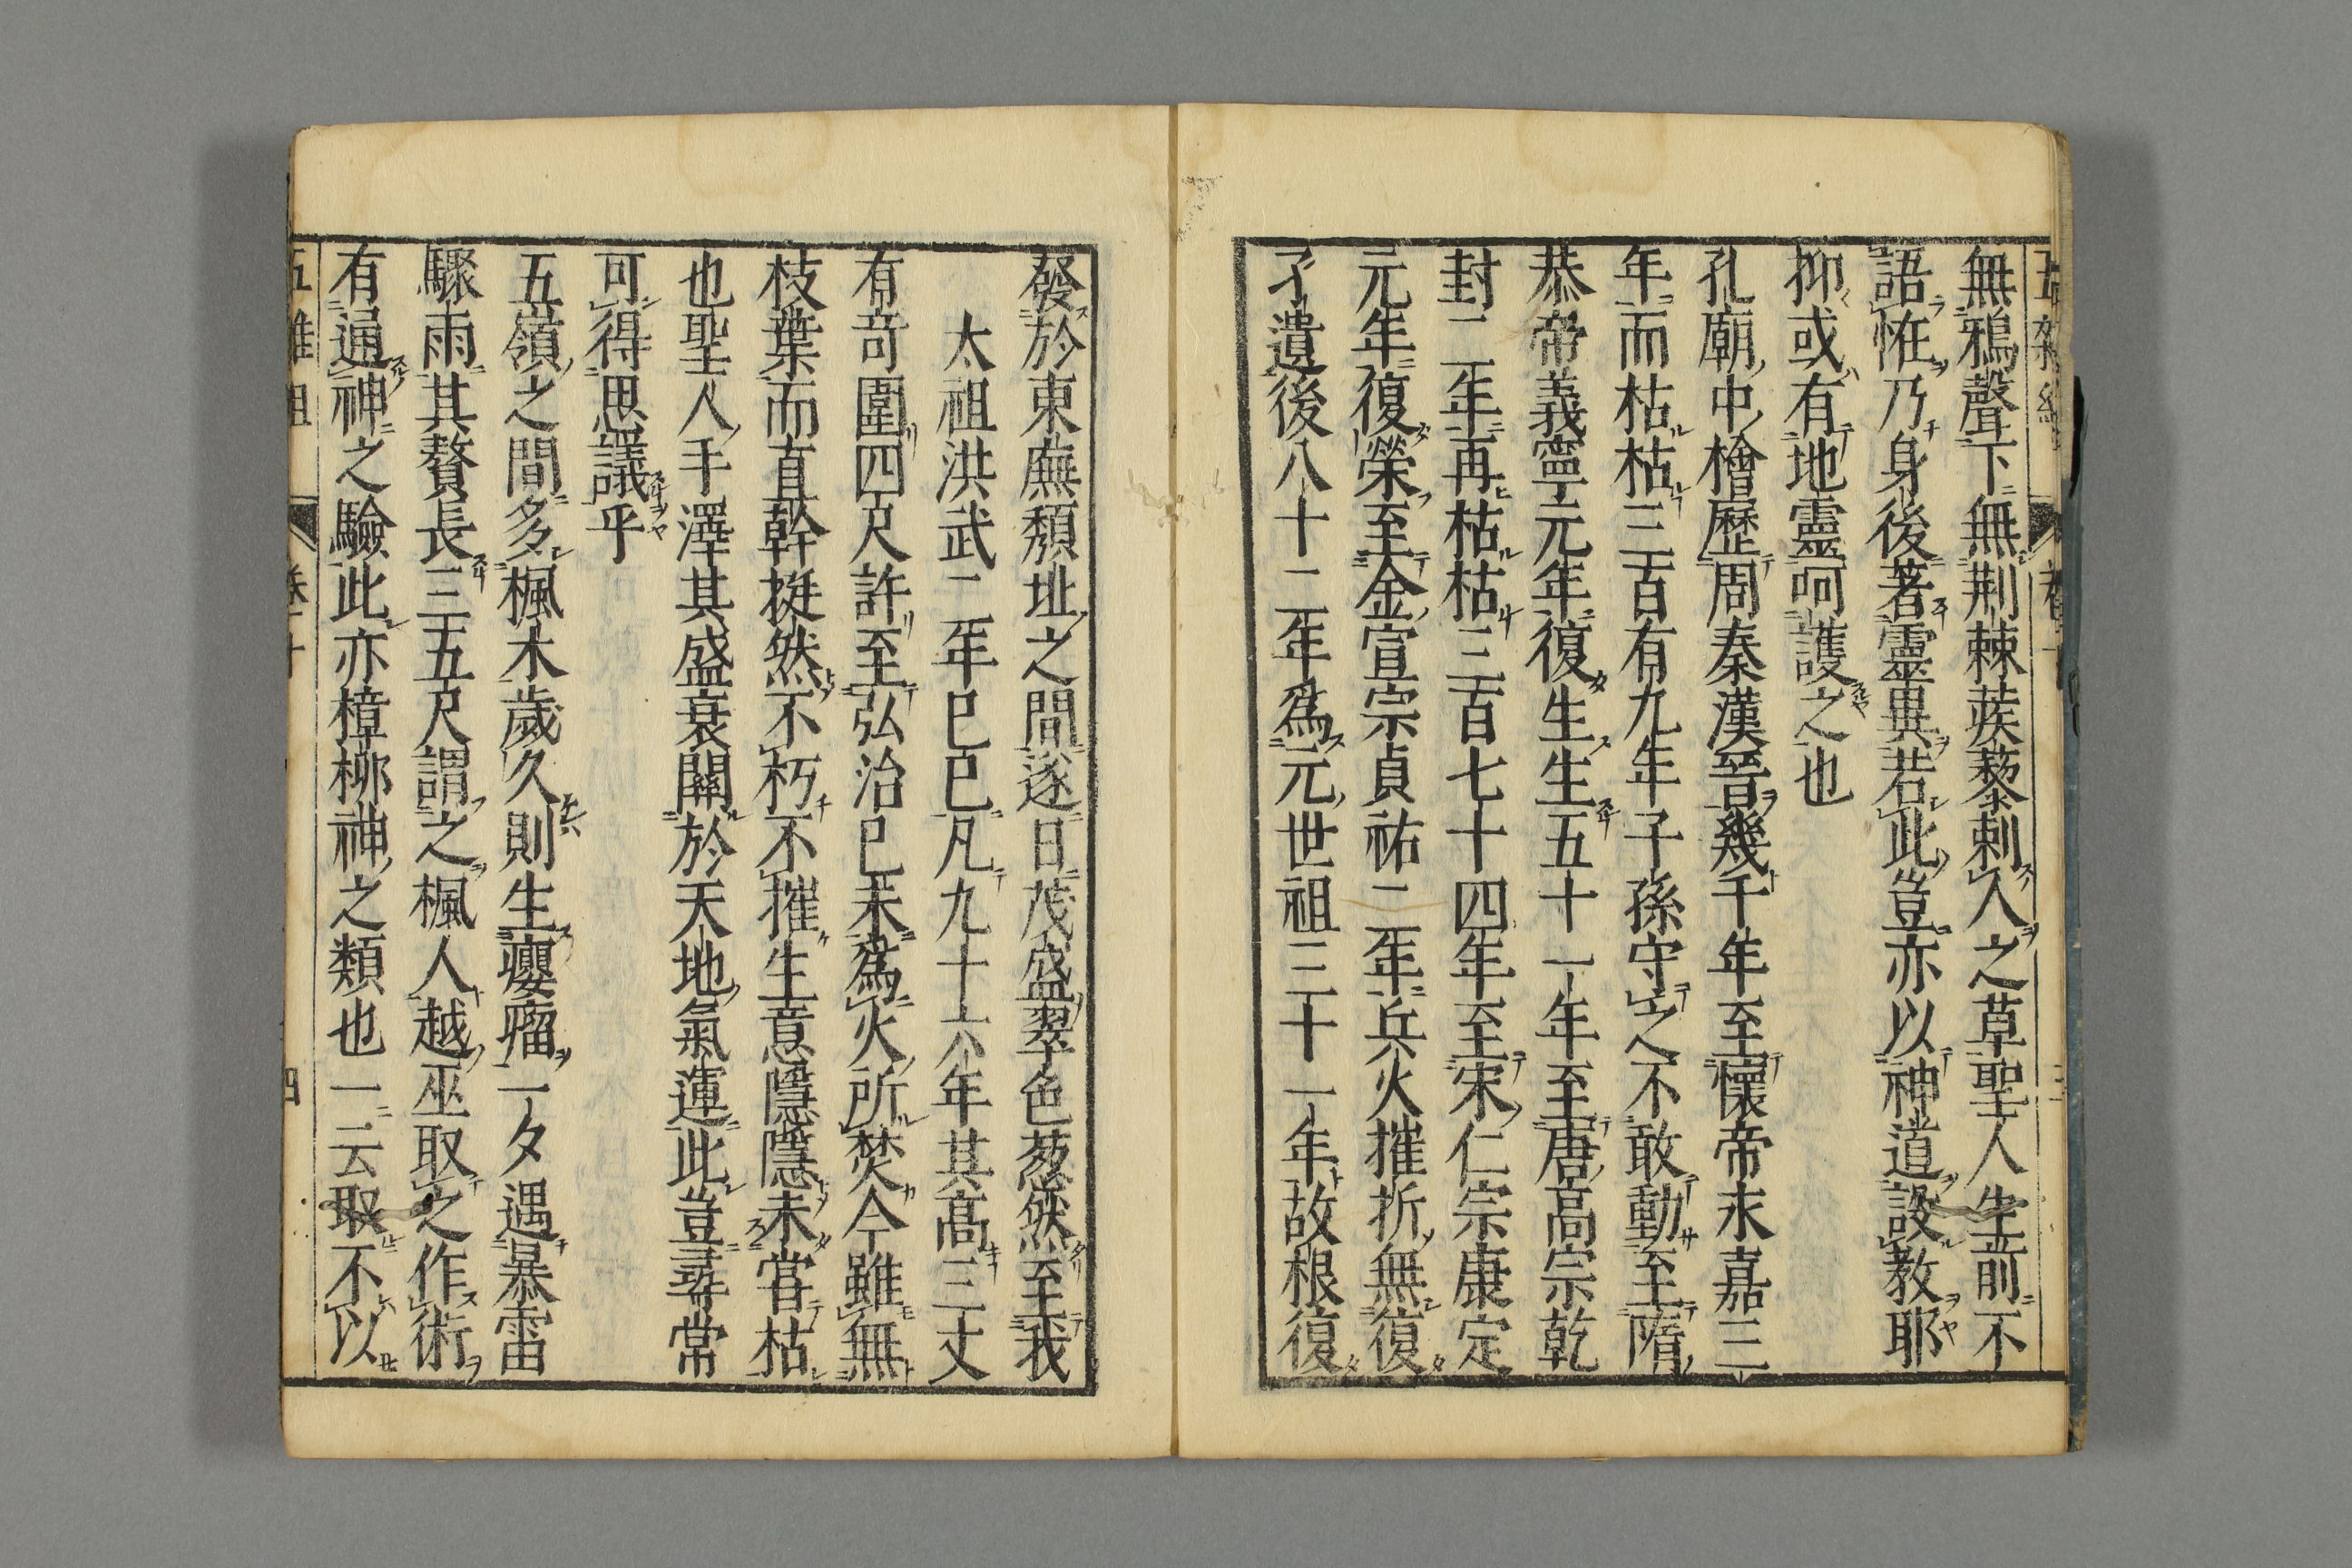 無鴉聲下無荆棘蒺藜刺人之草聖人生前不
語恠乃身後著靈異若此豈亦以神道設教耶
抑或有地靈呵護之也
孔廟中檜歷周秦漢晉幾千年至懷帝永嘉三
年而枯枯三百有九年子孫守之不敢動至隋
恭帝義寧元年復生生五十一年至唐高宗乾
封二年再枯枯三百七十四年至宋仁宗康定
元年復榮至金宣宗貞祐二年兵火摧折無復
孑遺後八十二年爲元世祖三十一年故根復
發於東廡頹址之間遂日茂盛翠色葱然至我
太祖洪武二年己巳凡九十六年其高三丈
有奇圍四尺許至弘治己未爲火所焚今雖無
枝葉而直幹挺然不朽不摧生意隱隱未嘗枯
也聖人手澤其盛衰關於天地氣運此豈尋常
可得思議乎
五嶺之間多楓木歲久則生癭瘤一夕遇暴雷
驟雨其贅長三五尺謂之楓人越巫取之作術
有通神之驗此亦樟柳神之類也一云取不以
五雜組 卷十 四